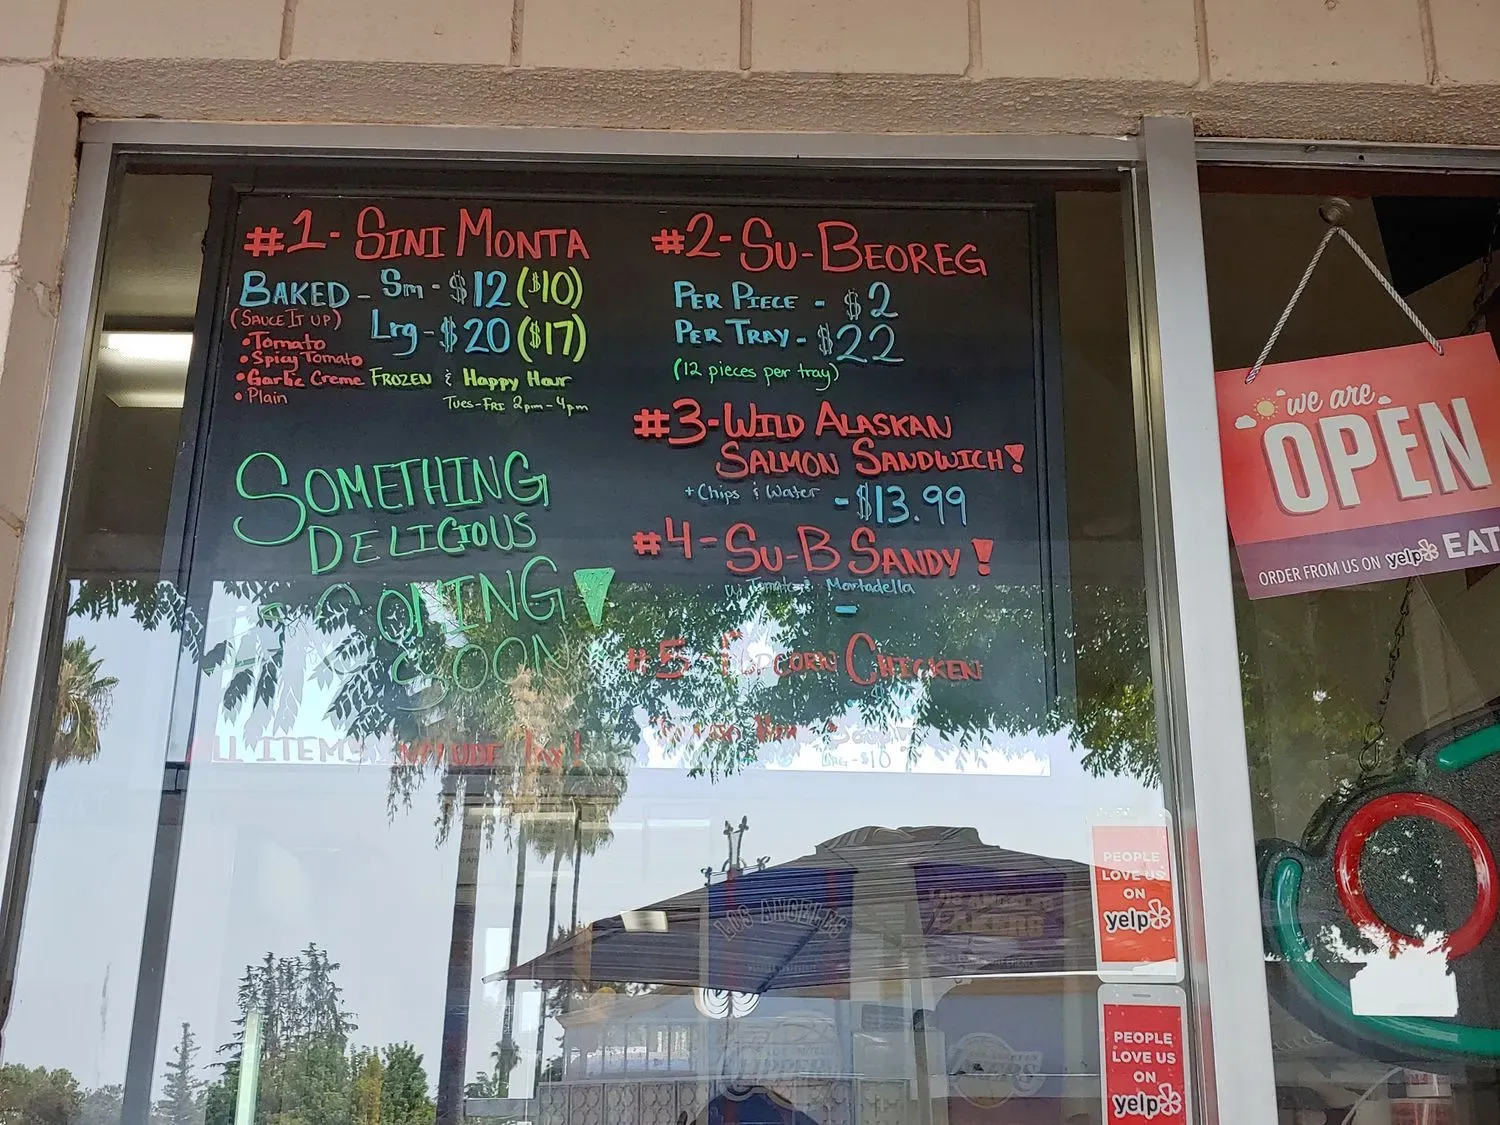 #1 - SINI MONTA
BAKED - Sm - $12 ($10)
(SAUCE IT UP)
Lrg - $20 ($17)
• Tomato
• Spicy Tomato
• Garlic Creme
• Plain
FROZEN & Happy Hour
TUES-FRI 2pm-4pm
SOMETHING
DELICIOUS
COMING
SOON!
ALL ITEMS INCLUDE TAX!
#2 - SU-BEOREG
PER PIECE - $2
PER TRAY - $22
(12 pieces per tray)
#3 - WILD ALASKAN
SALMON SANDWICH!
+ Chips & Water - $13.99
#4 - SU-B SANDY!
w/ Tomato & Mortadella
-
#5 - POPCORN CHICKEN
LRG - $10
we are
OPEN
ORDER FROM US ON yelp EAT
PEOPLE
LOVE US
ON
yelp
PEOPLE
LOVE US
ON
yelp
LOS ANGELES
LOS ANGELES
LAKERS